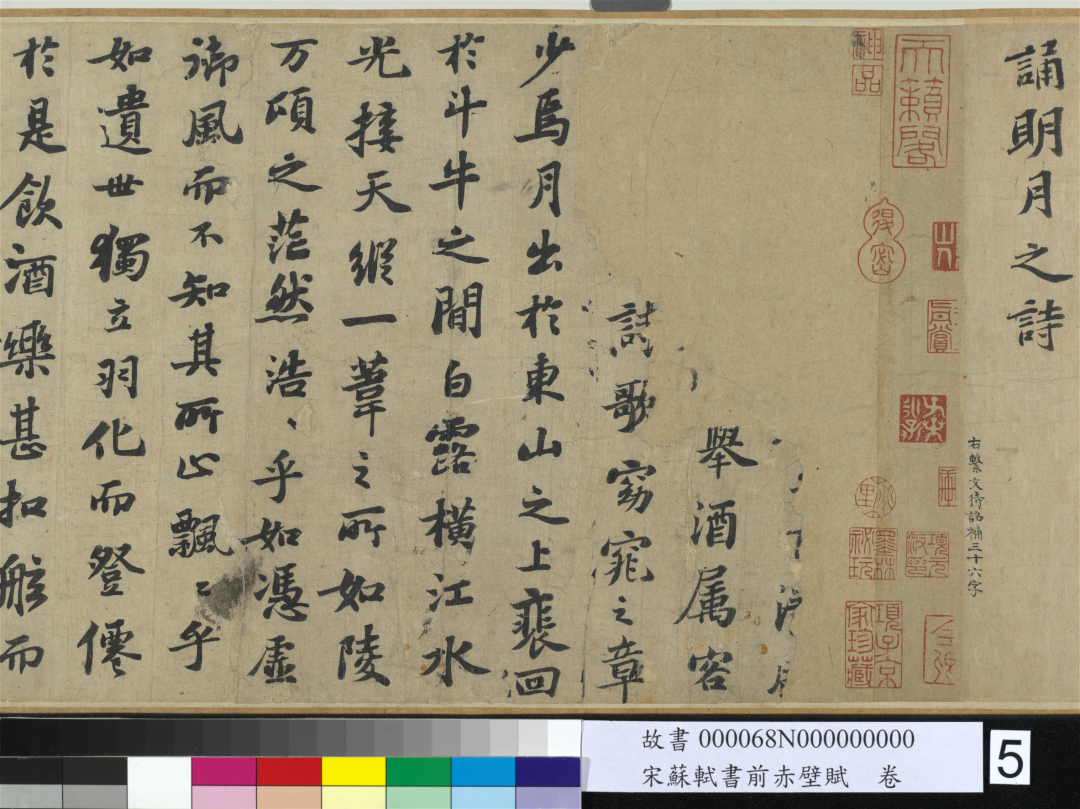 誦明月之詩
右繫文待詔補三十六字
天籟閣
神品
項元汴印
墨林秘玩
項子京家珍藏
舉酒属客
歌窈窕之章
少焉月出於東山之上裴回
於斗牛之間白露橫江水
光接天縱一葦之所如陵
万頃之茫然浩、乎如憑虛
御風而不知其所止飄〻乎
如遺世獨立羽化而登僊
於是飲酒樂甚扣舷而
故書 000068N000000000
宋蘇軾書前赤壁賦 卷
5